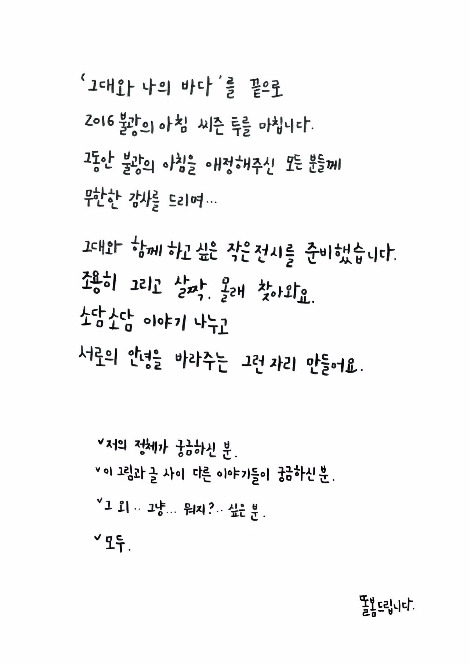 '그대와 나의 바다'를 끝으로
2016 불광의 아침 씨즌 투를 마칩니다.
그동안 불광의 아침을 애정해주신 모든 분들께
무한한 감사를 드리며...
그대와 함께 하고 싶은 작은 전시를 준비했습니다.
조용히 그리고 살짝, 몰래 찾아와요.
소담소담 이야기 나누고
서로의 안녕을 바라주는 그런 자리 만들어요.
ˇ저의 정체가 궁금하신 분.
ˇ이 그림과 글 사이 다른 이야기들이 궁금하신 분.
ˇ그 외.. 그냥... 뭐지?.. 싶은 분.
ˇ모두.
똘봄드립니다.